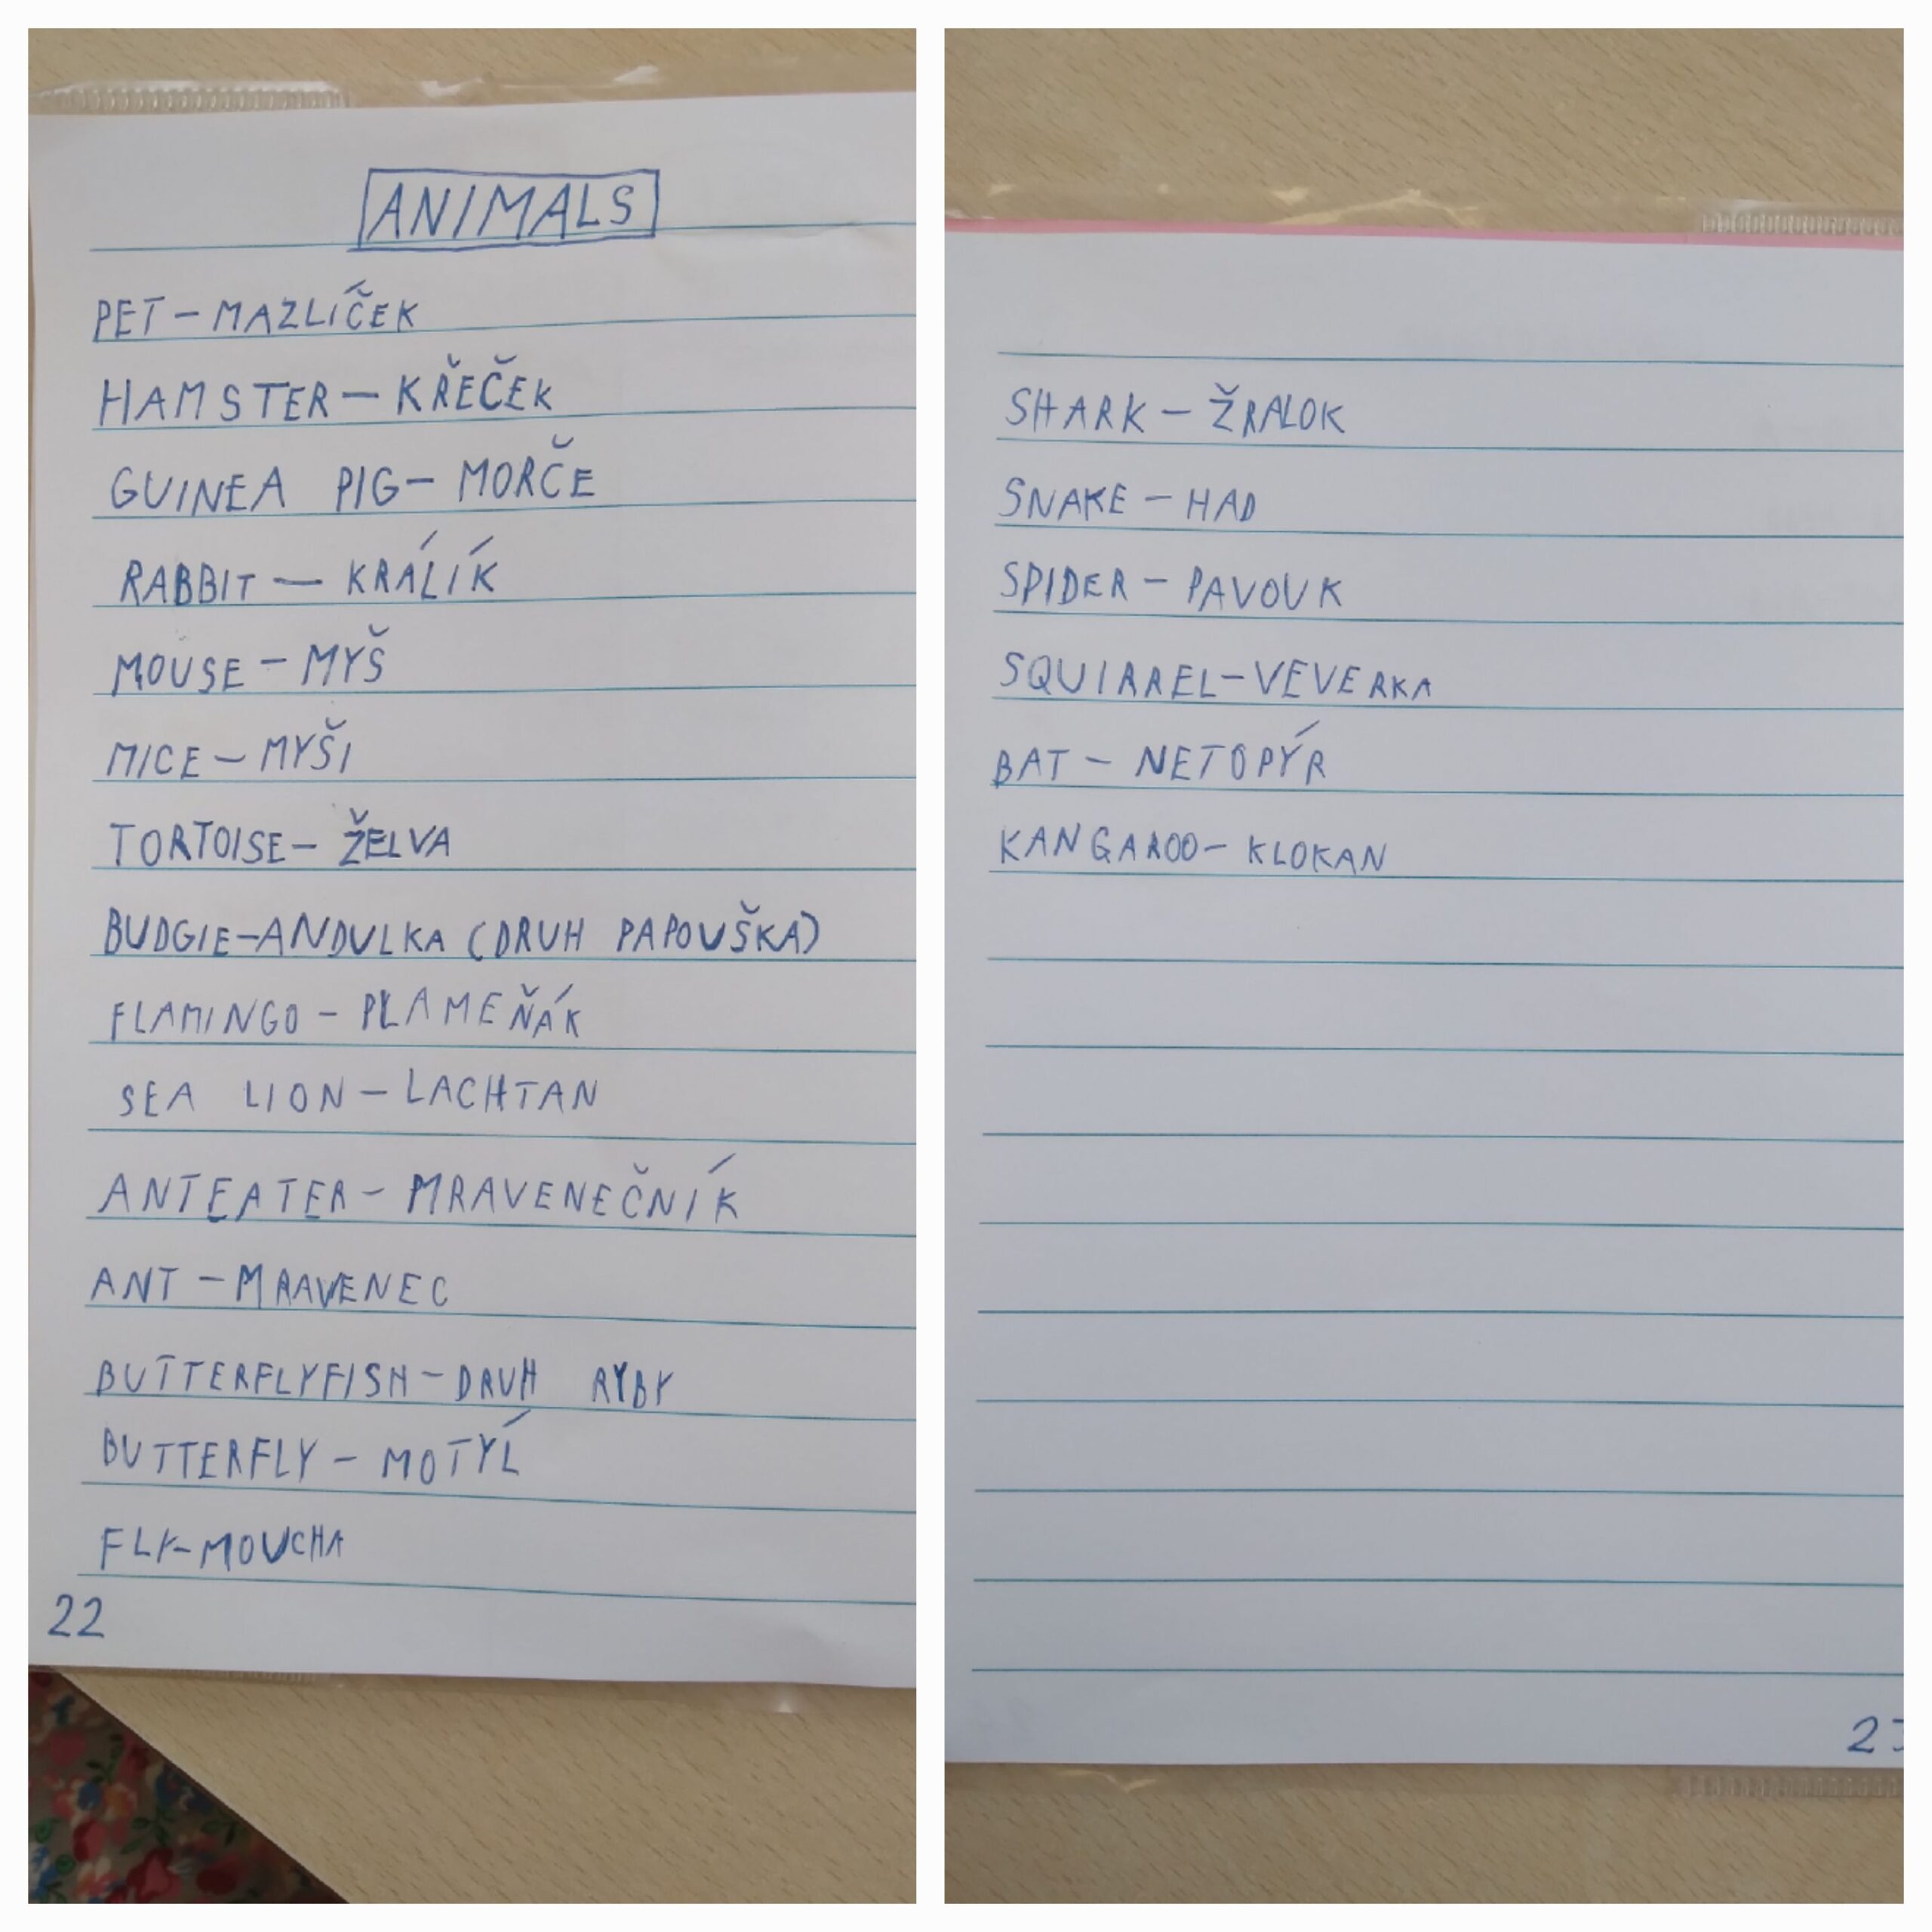 ANIMALS
PET - MAZLÍČEK
HAMSTER - KŘEČEK
GUINEA PIG - MORČE
RABBIT - KRÁLÍK
MOUSE - MYŠ
MICE - MYŠI
TORTOISE - ŽELVA
BUDGIE - ANDULKA (DRUH PAPOUŠKA)
FLAMINGO - PLAMEŇÁK
SEA LION - LACHTAN
ANTEATER - MRAVENEČNÍK
ANT - MRAVENEC
BUTTERFLYFISH - DRUH RYBY
BUTTERFLY - MOTÝL
FLY - MOUCHA
22
SHARK - ŽRALOK
SNAKE - HAD
SPIDER - PAVOUK
SQUIRREL - VEVERKA
BAT - NETOPÝR
KANGAROO - KLOKAN